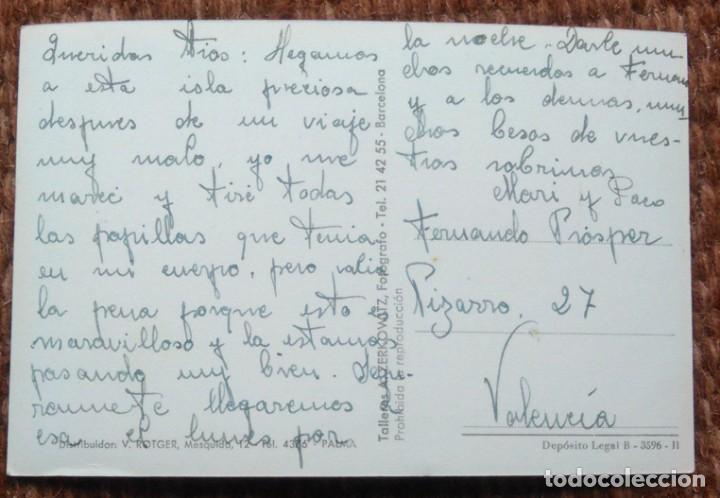 Queridos tios: Llegamos
a esta isla preciosa
despues de un viaje
muy malo, yo me
mareé y tiré todas
las papillas que tenia
en mi cuerpo, pero valio
la pena porque esto es
maravilloso y la estamos
pasando muy bien.
llegaremos
a esa el lunes por
Distribuidor: V. ROTGER, Mesquida, 12 - Tel. 4376 - PALMA
Talleres A. ZERKOWITZ, Fotógrafo - Tel. 21 42 55 - Barcelona
Prohibida la reproducción
la noche. Darle mu
chos recuerdos a Fernan
y a los demas, mu
chos besos de vues-
tros sobrinos
Mari y Paco
Fernando Prósper
Pizarro, 27
Valencia
Depósito Legal B - 3596 - II
todocoleccion.net